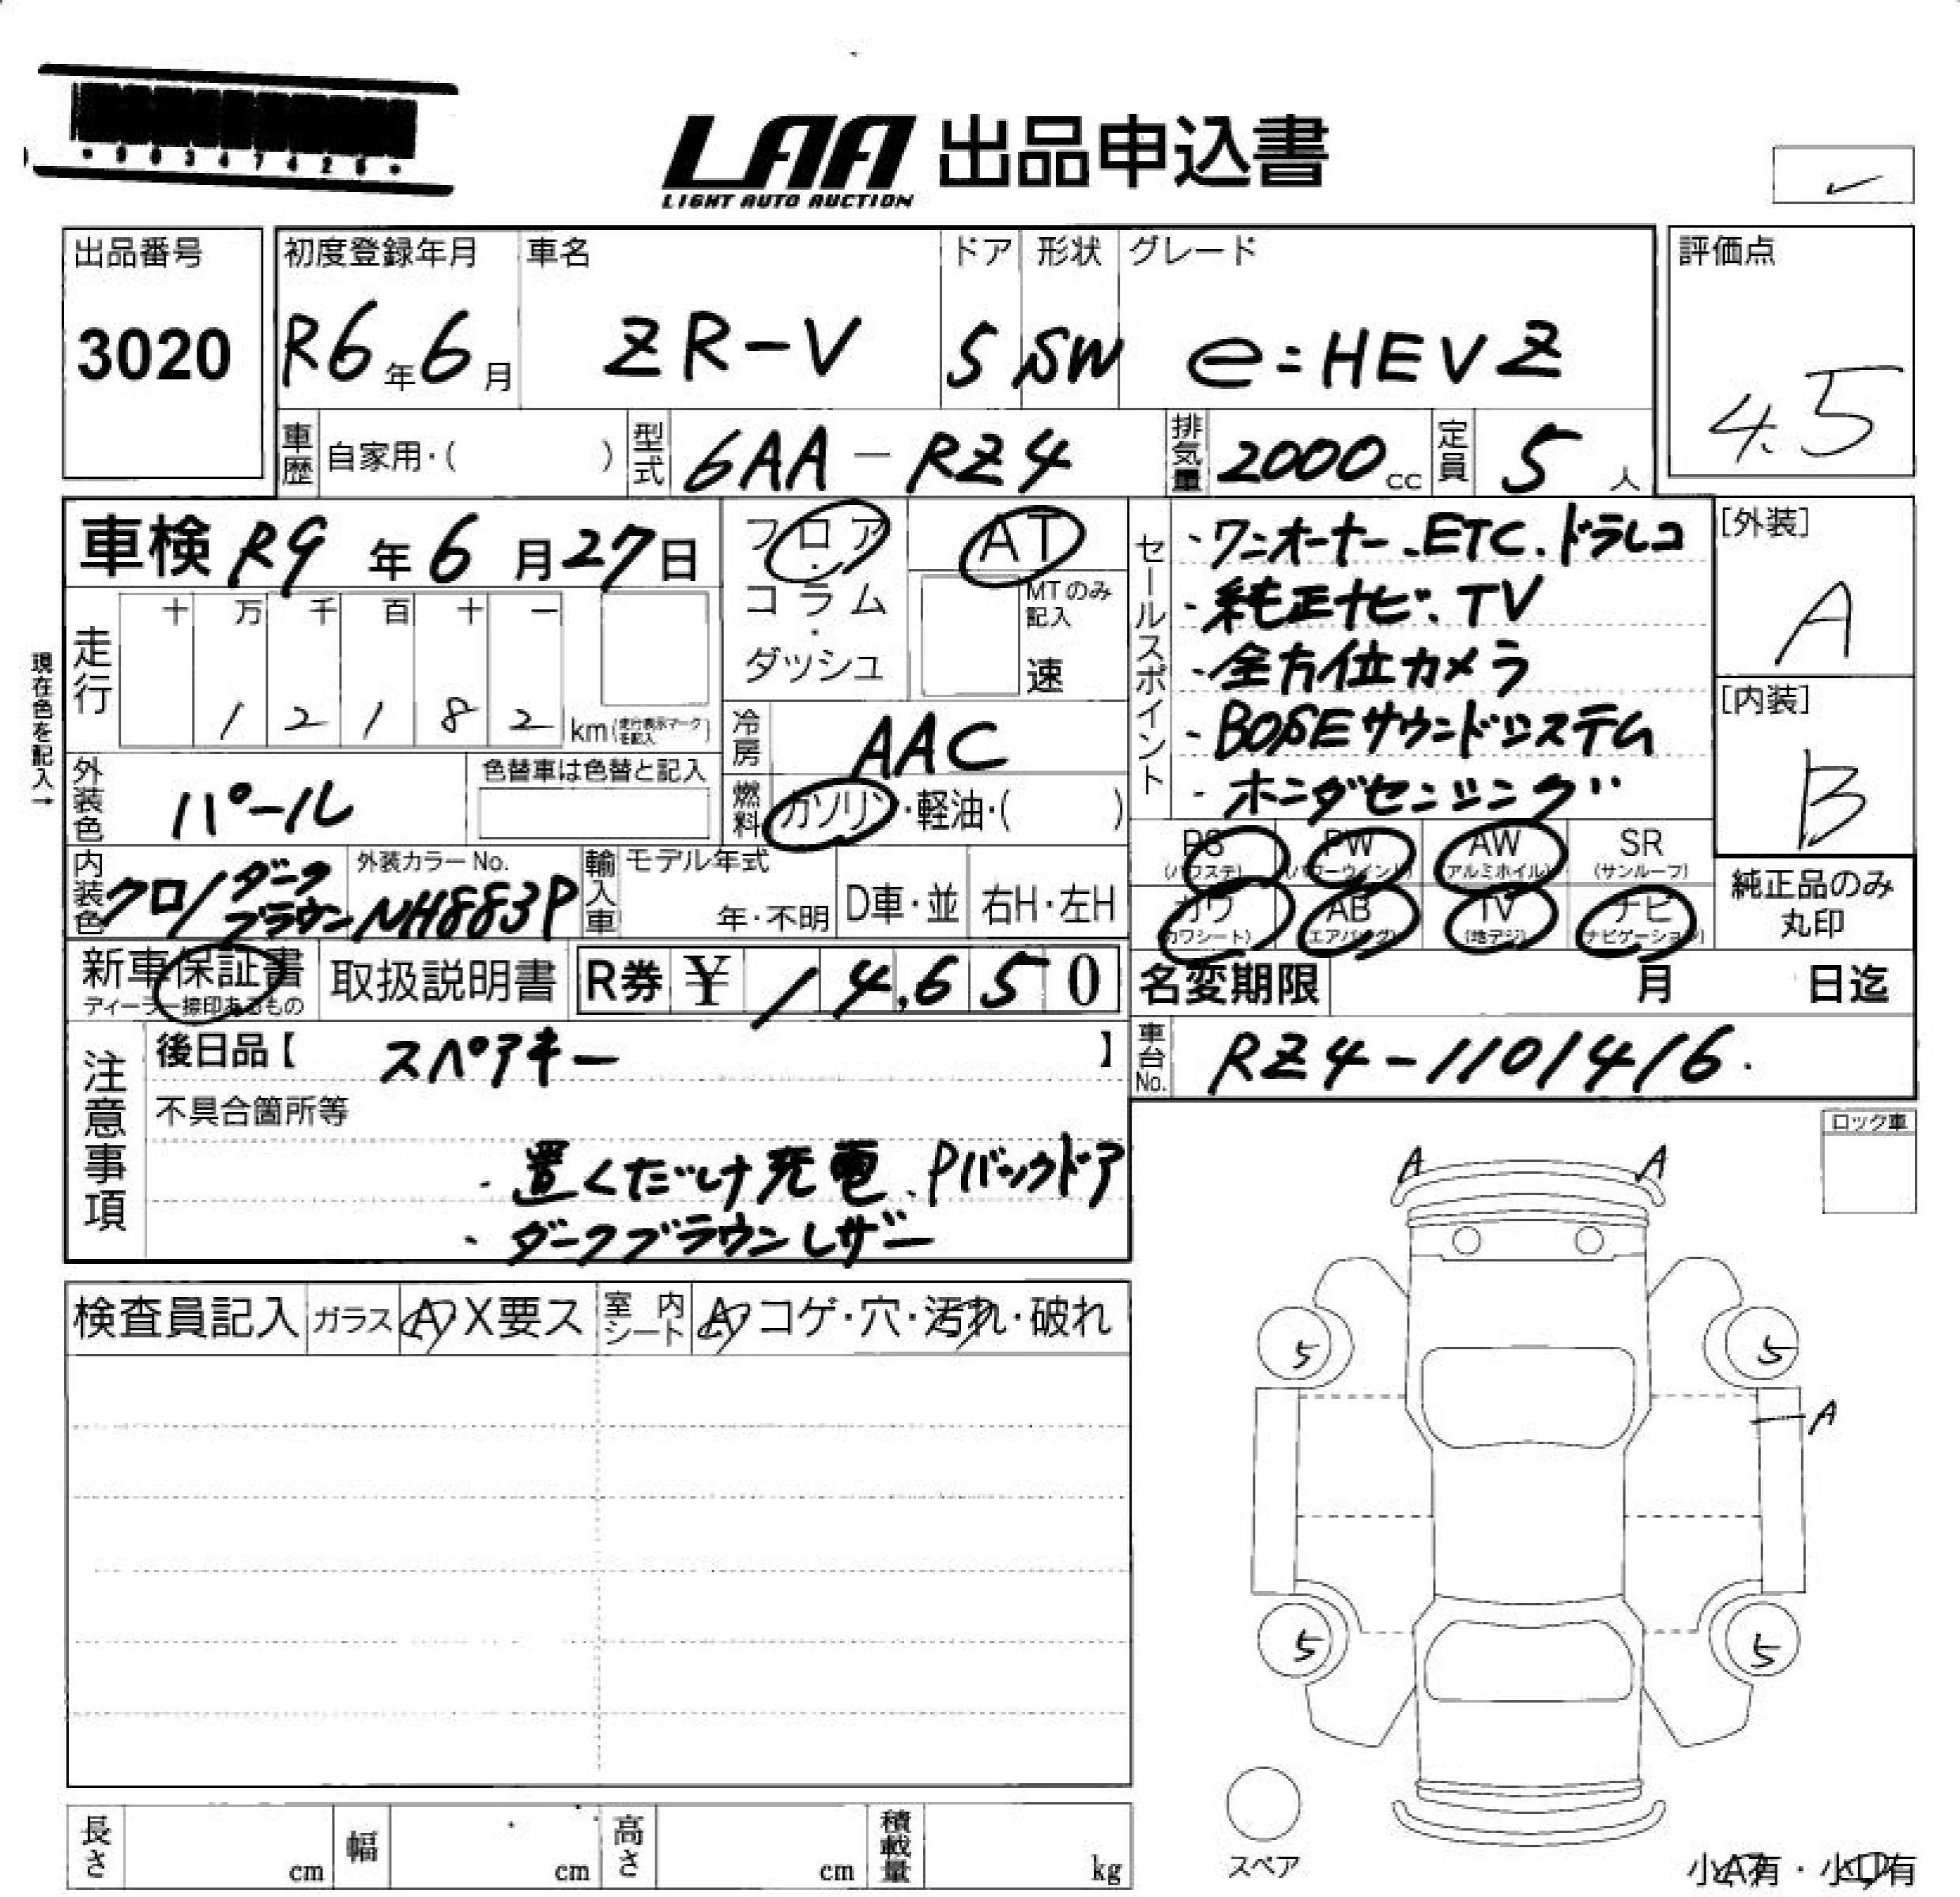 LAA 出品申込書
LIGHT AUTO AUCTION
出品番号
3020
初度登録年月
R6年6月
車名
ZR-V
ドア
5
形状
SW
グレード
e:HEV Z
評価点
4.5
車歴 自家用・( )
型式 6AA-RZ4
排気量 2000cc
定員 5人
車検 R9年6月27日
フロア・コラム・ダッシュ
AT
MTのみ記入
速
セールスポイント
・ワンオーナー、ETC、ドラレコ
・純正ナビ、TV
・全方位カメラ
・BOSEサウンドシステム
・ホンダセンシング
[外装]
A
[内装]
B
現在色を記入→
走行
十 万 千 百 十 一
1 2 1 8 2 km(走行表示マークを記入)
冷房 AAC
外装色 パール
色替車は色替と記入
燃料 ガソリン・軽油・( )
内装色 クロ/ダークブラウン
外装カラーNo.
NH883P
輸入車
モデル年式
年・不明
D車・並
右H・左H
PS(パワステ)
PW(パワーウインド)
AW(アルミホイル)
SR(サンルーフ)
カワ(カワシート)
AB(エアバッグ)
TV(地デジ)
ナビ(ナビゲーション)
純正品のみ丸印
新車保証書
ディーラー捺印あるもの
取扱説明書
R券 ¥ 14,650
名変期限 月 日迄
車台No. RZ4-1101416.
注意事項
後日品【 スペアキー 】
不具合箇所等
・置くだけ充電、Pバックドア
・ダークブラウンレザー
ロック車
A A
検査員記入
ガラス A X要ス
室内シート コゲ・穴・汚れ・破れ
5 5
A
5 5
スペア
長さ cm
幅 cm
高さ cm
積載量 kg
小A有・小U有